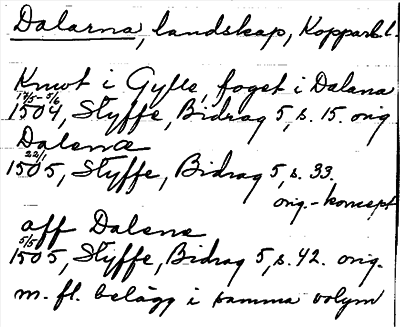 Dalarna, landskap, Kopparb. l.
Knwt i Gylle, foget i Dalana
17/5-2/6
1504, Styffe, Bidrag 5, s. 15. orig
Dalenæ
22/1
1505, Styffe, Bidrag 5, s. 33.
orig.-koncept
aff Dalene
5/5
1505, Styffe, Bidrag 5, s. 42. orig.
m. fl. belägg i samma volym